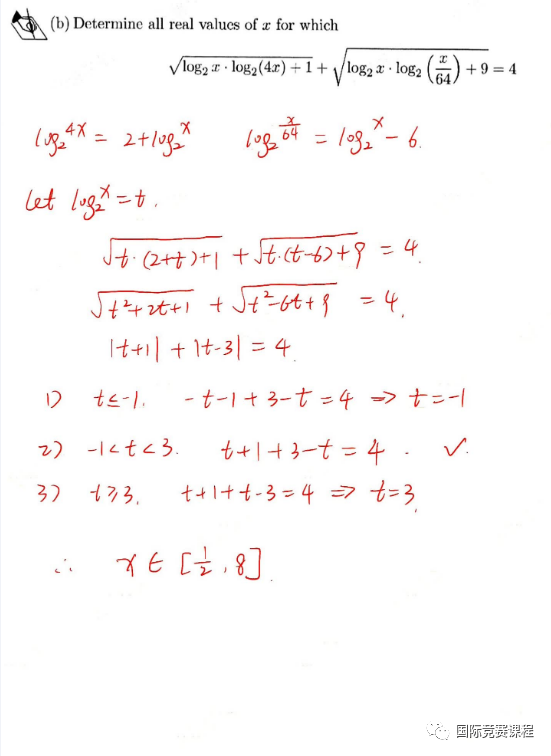 (b) Determine all real values of x for which
√(log₂ x · log₂(4x) + 1) + √(log₂ x · log₂ (x/64) + 9) = 4
log₂^4x = 2+log₂^x log₂^(x/64) = log₂^x − 6.
Let log₂^x = t.
√(t·(2+t)+1) + √(t·(t−6)+9) = 4.
√(t²+2t+1) + √(t²−6t+9) = 4.
|t+1| + |t−3| = 4.
1) t≤−1. −t−1+3−t=4 ⇒ t=−1
2) −1<t<3. t+1+3−t=4. ✓.
3) t≥3. t+1+t−3=4 ⇒ t=3.
∴ x∈[1/2, 8].
国际竞赛课程